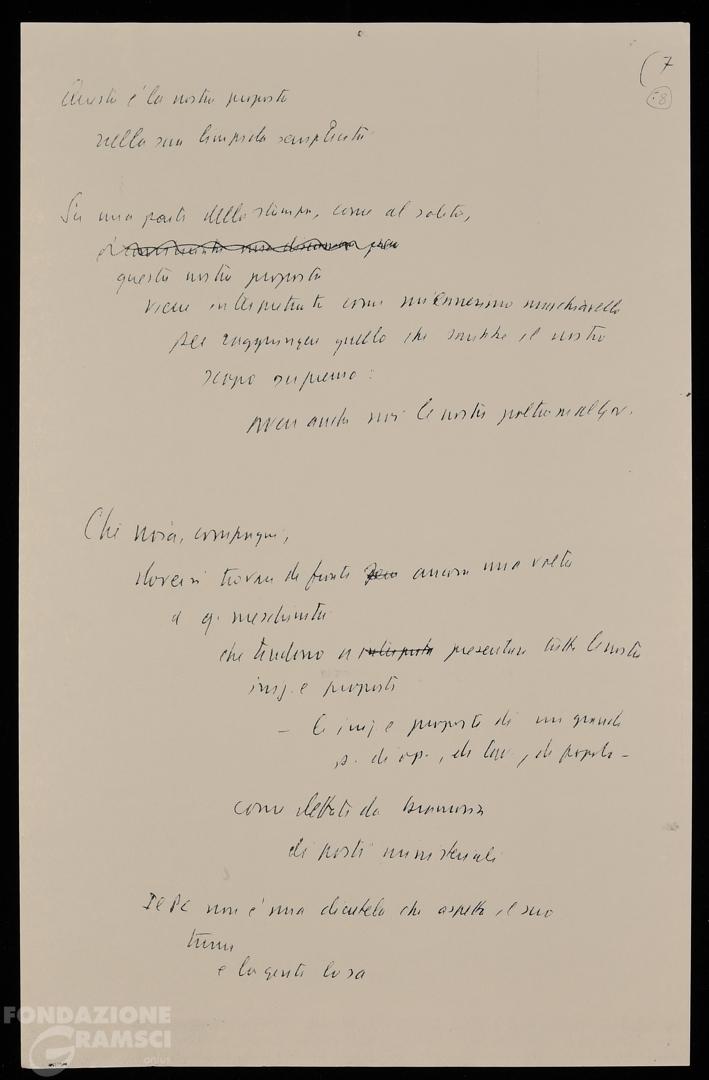 (7
58
Questa è la nostra proposta
nella sua limpida semplicità
Su una parte della stampa, come al solito,
è
questa nostra proposta
viene interpretata come un ennesimo
per raggiungere quello che sarebbe il nostro
scopo supremo:
avere anche noi le nostre poltrone al Gov.
Che noia, compagni,
doversi trovare di fronte ancora una volta
a q. meschinità
che tendono a interpreta presentare tutte le nostre
iniz. e proposte
– le iniz e proposte di un grande
p. di op., di lav., di popolo –
come dettate da bramosia
di posti ministeriali
Il PC non è una clientela che aspetta il suo
turno
e la gente lo sa
FONDAZIONE
GRAMSCI
onlus